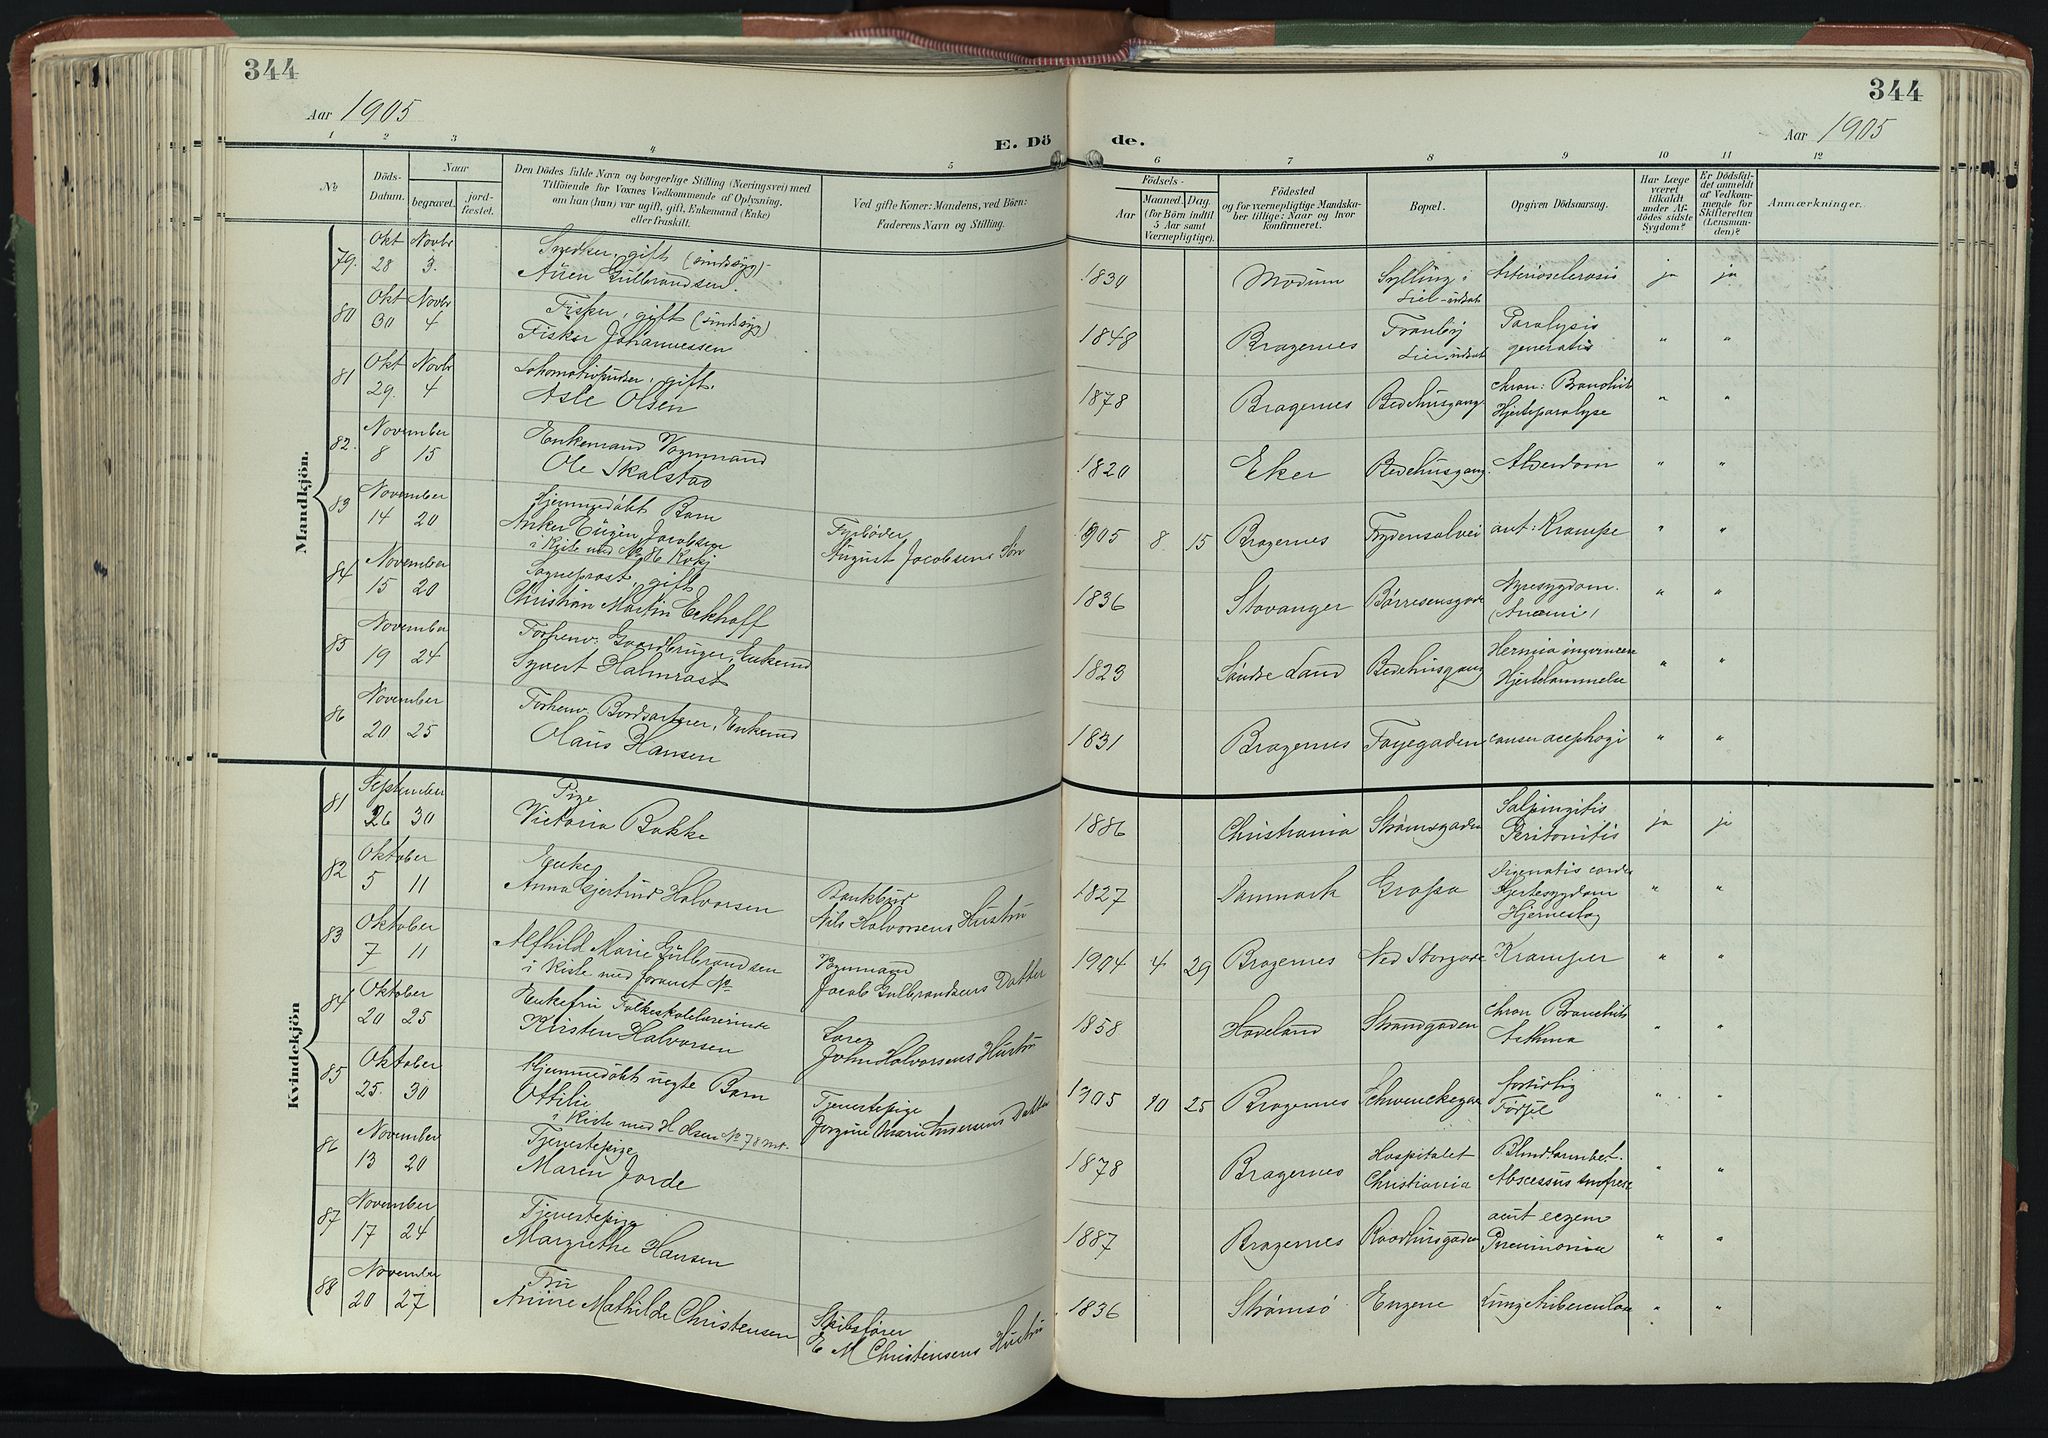 344
344
Aar 1905
Aar 1905
E. Dö
de.
1 2 3 4 5 6 7 8 9 10 11 12
No
Döds-Datum.
Naar
begravet.
jord-fæstet.
Den Dödes fulde Navn og borgerlige Stilling (Næringsvei) med
Tilföiende for Voxnes Vedkommende af Oplysning,
om han (hun) var ugift, gift, Enkemand (Enke)
eller fraskilt.
Ved gifte Koner: Mandens, ved Börn:
Faderens Navn og Stilling.
Födsels-
Aar
Maaned. Dag.
(for Börn indtil
5 Aar samt
Værnepligtige).
Födested
og for værnepligtige Mandska-
ber tillige: Naar og hvor
konfirmeret.
Bopæl.
Opgiven Dödsaarsag.
Har Læge
været
tilkaldt
under Af-
dödes sidste
Sygdom?
Er Dödsfal-
det anmeldt
af Vedkom-
mende for
Skifteretten
(Lensman-
den)?
Anmærkninger.
Mandkjön.
79. Okt 28 Novbr 3. Snedker, gift (sindssyg)
Auen Gulbrandsen. 1830 Modum Sylling i Lier Arteriosclerosis ja ja
80 Okt 30 Novbr 4 Fisker, gift (sindssyg)
Fisker Johannessen 1848 Bragernes Tranby Lier Paralysis generalis " "
81 Okt 29. Novbr 4 Lokomotivpudser, gift.
Asle Olsen 1878 Bragernes Bedehusgang chron: Bronchit Hjerteparalyse " "
82. November 8 15 Enkemand Vognmand
Ole Skalstad 1820 Eker Bedehusgang. Alderdom " "
83 November 14 20 Hjemmedøbt Barn
Anker Eugen Jacobsen
i Kiste med No 86 Kvkj
Fyrbøder
August Jacobsens Søn 1905 8 15 Bragernes Frydensalvei Krampe " "
84 November 15 20 Sogneprest, gift
Christian Martin Eckhoff 1836 Stavanger Børresensgade Nyresygdom. (Anæmi) " "
85 November 19 24 Forhenv. Gaardbruger, Enkemd
Syvert Halmrast 1823 Søndre Land Bedehusgang Hjertelammelse " "
86 November 20 25 Forhenv. Enkemd
Olaus Hansen 1831 Bragernes Fayegaden " "
Kvindekjön
81 September 26 30 Pige
Victoria Bakke 1886 Christiania Strømsgaden Salpingitis Peritonitis ja ja
82 Oktober 5 11 Enke
Anna Gjertrud Halvorsen
Bankbud
Nils Halvorsens Hustru 1827 Danmark Grossa Hjertesygdom Hjerneslag " "
83 Oktober 7 11 Alfhild Marie Gulbrandsen
i Kiste med foranst No
Vognmand
Jacob Gulbrandsens Datter 1904 4 29 Bragernes Ned Storgade Kramper " "
84 Oktober 20 25 Enkefru, Folkeskolelærerinde
Kirsten Halvorsen
Lærer
John Halvorsens Hustru 1858 Hadeland Strandgaden chron Bronchit Asthma " "
85 Oktober 25. 30 Hjemmedøbt uegte Barn
Ottilie
i Kiste med H Olsen No 78 mk.
Tjenestepige
Jorgine Marie Andersens Datter 1905 10 25 Bragernes fortidlig Fødsel " "
86 November 13 20 Tjenestepige
Maren Jorde 1878 Bragernes Hospitalet Christiania Blindtarmbet. " "
87 November 17 24 Tjenestepige
Margrethe Hansen 1887 Bragernes Raadhusgaden eczem Pneumonia " "
88 November 20 27 Fru
Anne Mathilde Christensen
Skibsfører
E M Christensens Hustru 1836 Strømsø Engene Lungetuberculose " "